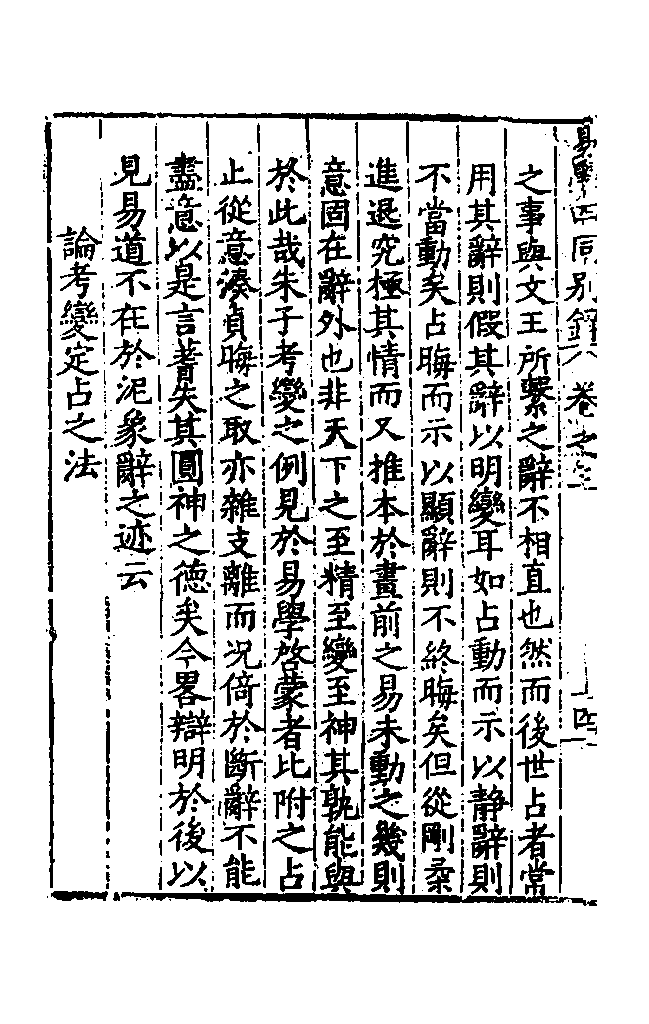 易學四同別錄 卷之 十四
之事與文王所繫之辭不相直也然而後世占者常
用其辭則假其辭以明變耳如占動而示以静辭則
不當動矣占晦而示以顯辭則不終晦矣但從剛柔
進退究極其情而又推本於畫前之易未動之幾則
意固在辭外也非天下之至精至變至神其孰能與
於此哉朱子考變之例見於易學啓蒙者比附之占
止從意湊貞晦之取亦雜支離而况倚於斷辭不能
盡意以是言蓍失其圓神之德矣今畧辯明於後以
見易道不在於泥象辭之迹云
論考變定占之法